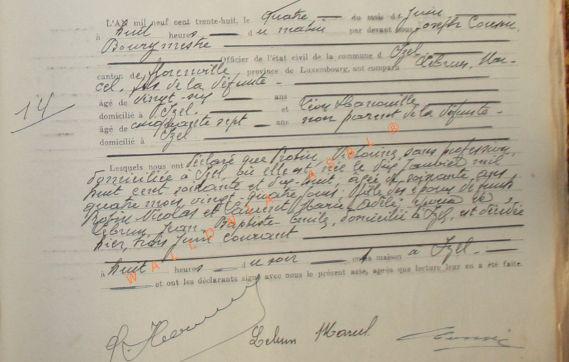 L'AN mil neuf cent trente-huit, le Quatre du mois de Juin
à Huit heures du matin par devant nous Joseph
Bourgmestre
Officier de l'état civil de la commune d'Izel
canton de Florenville, province de Luxembourg, ont comparu Lebrun, Mar-
cel, fils de la défunte
âgé de vingt-six ans
domicilié à Izel et Léon
âgé de cinquante sept ans non parent de la défunte
domicilié à Izel
14
Lesquels nous ont déclaré que Robin, sans profession,
domiciliée à Izel, où elle est née le dix Janvier mil
huit cent soixante et dix-huit, âgée de soixante ans
quatre mois vingt-quatre jours, fille des époux défunts
Robin Nicolas et Laurent Marie épouse de
Lebrun, Jean Baptiste Emile, domiciliée à Izel, est décédée
hier, trois Juin courant
à Huit heures du soir en sa maison à Izel
et ont les déclarants signé avec nous le présent acte, après que lecture leur en a été faite.
Lebrun Marcel